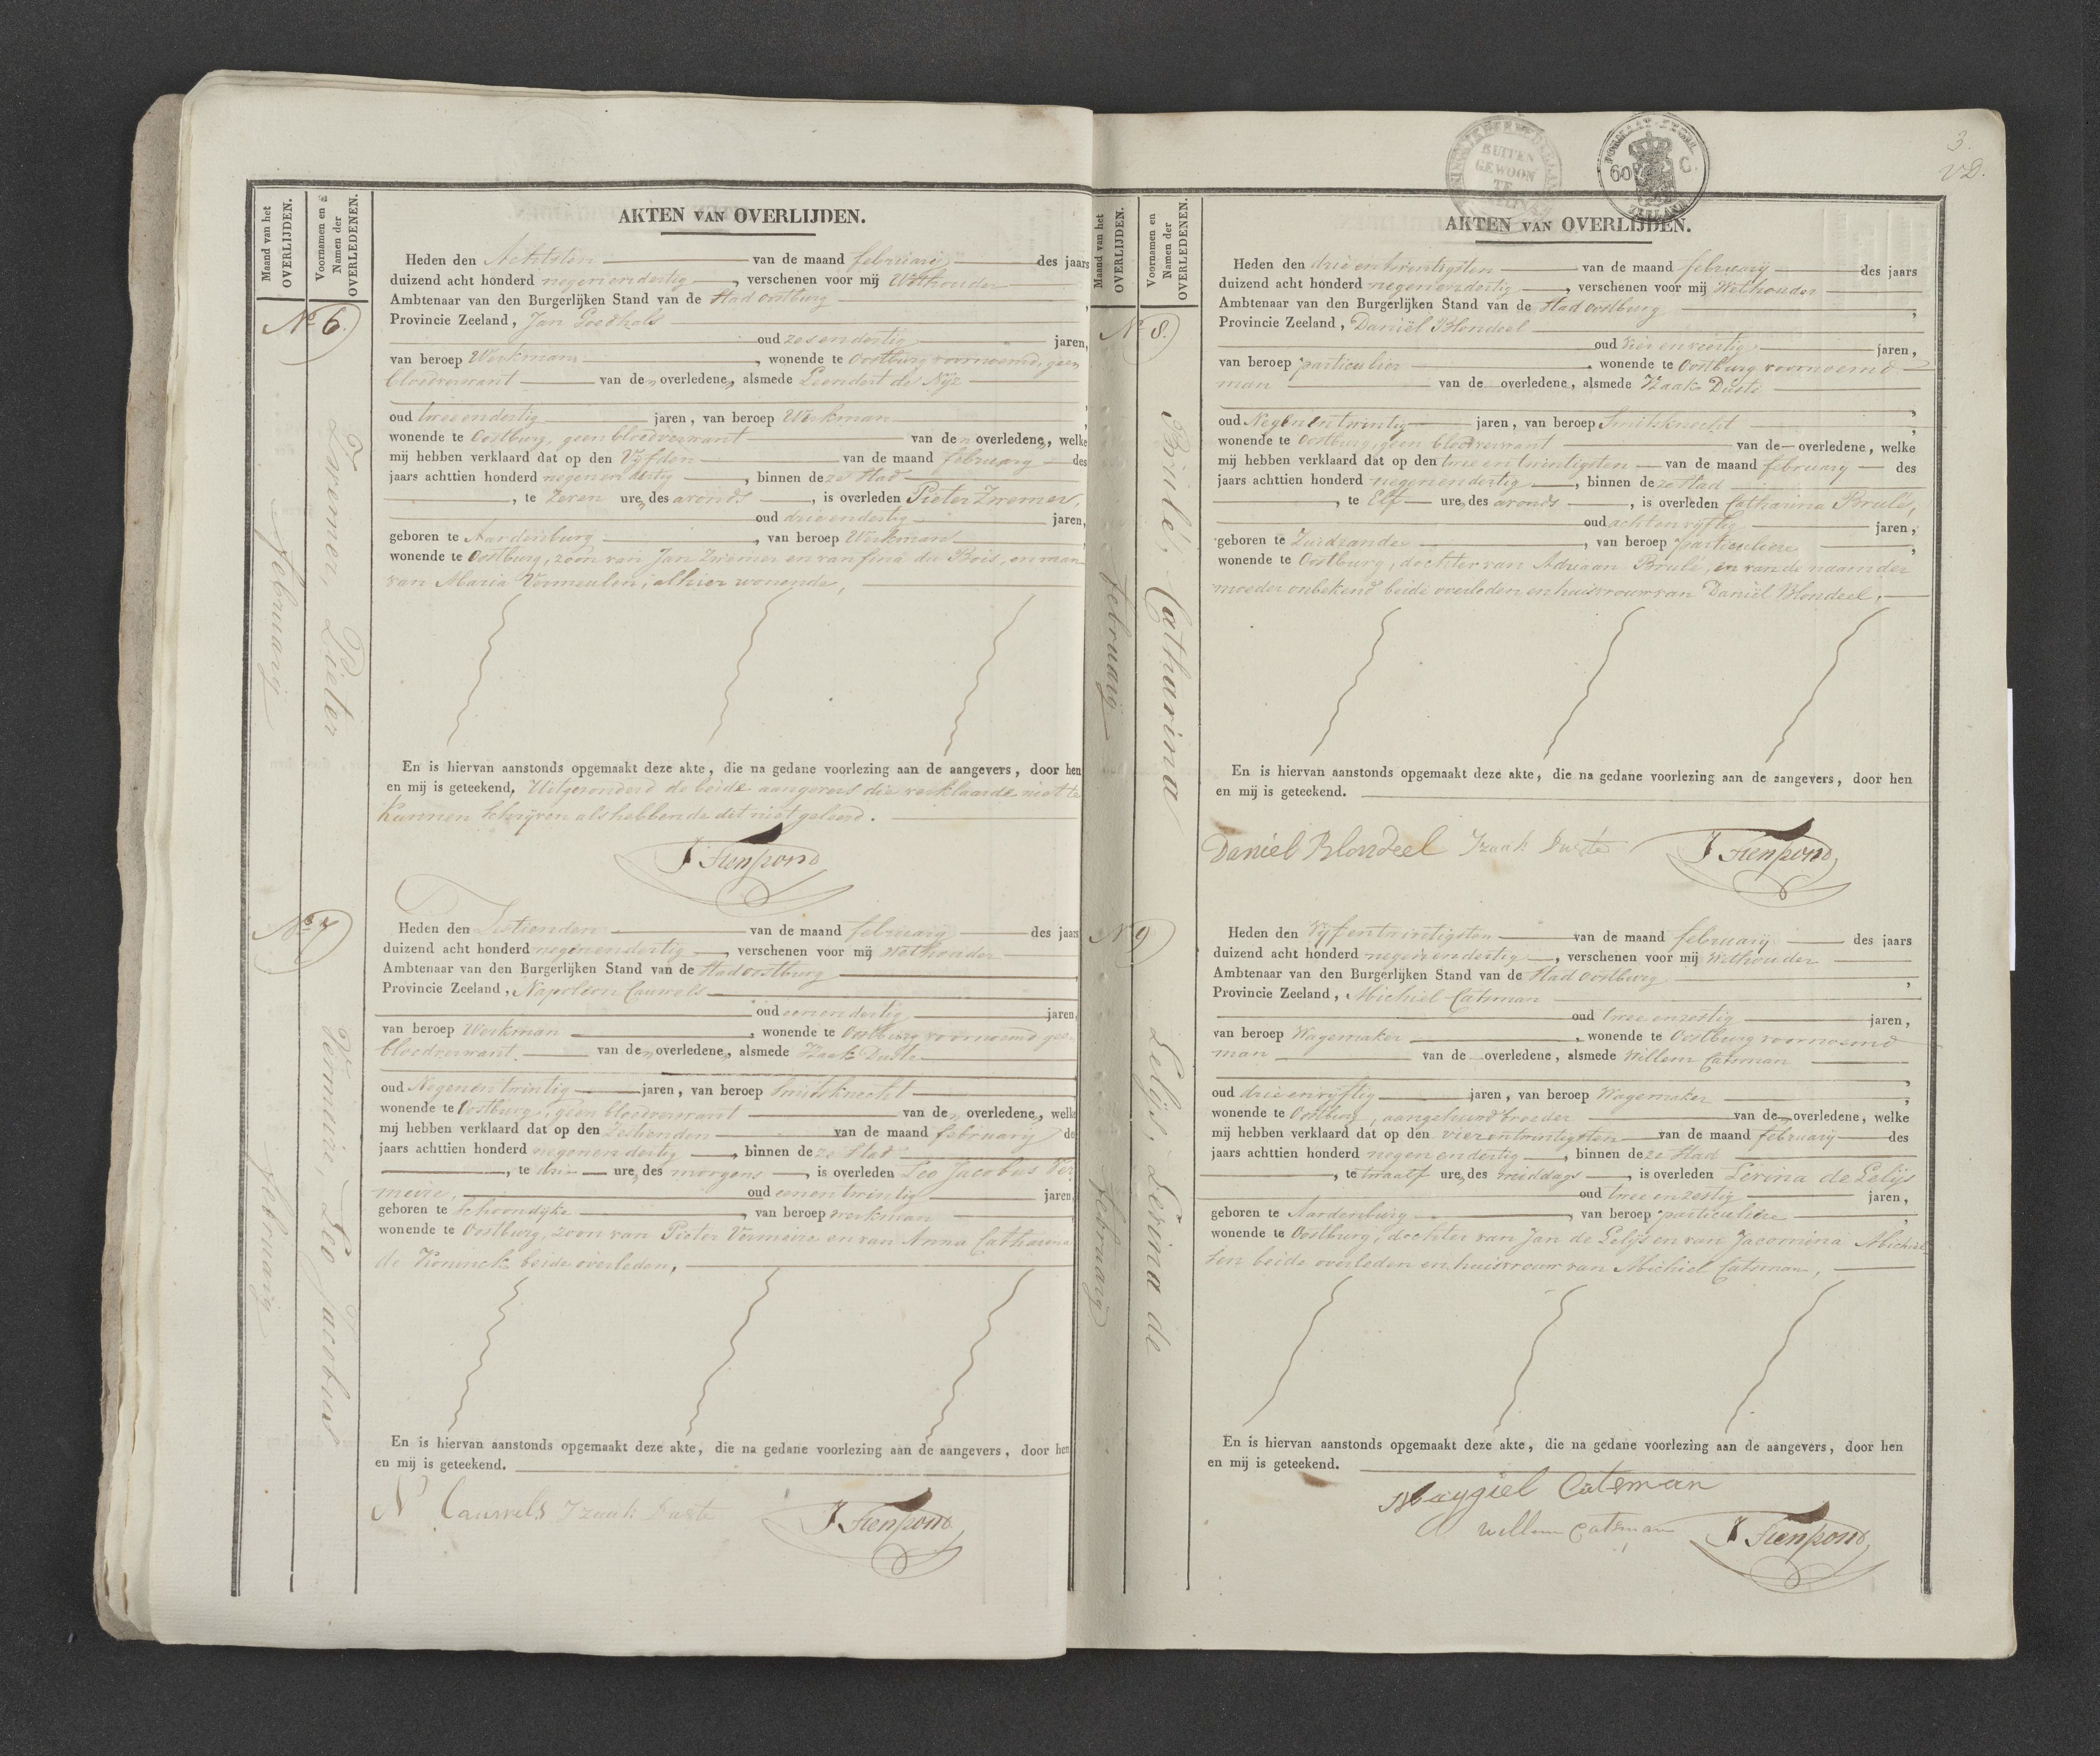 Maand van het OVERLIJDEN.
Voornamen en Namen der OVERLEDENEN.
AKTEN VAN OVERLIJDEN.
No 6.
februarij
Zwemer, Pieter
Heden den Achtsten van de maand februarij des jaars
duizend acht honderd negen en dertig, verschenen voor mij Wethouder
Ambtenaar van den Burgerlijken Stand van de Stad Oostburg,
Provincie Zeeland, Jan Goedhals
oud zes en dertig jaren,
van beroep Werkman, wonende te Oostburg voornoemd, geen
bloedverwant van den overledene, alsmede Leendert de Nijz
oud twee en dertig jaren, van beroep Werkman,
wonende te Oostburg, geen bloedverwant van den overledene, welke
mij hebben verklaard dat op den Vyfden van de maand february des
jaars achttien honderd negen en dertig, binnen deze Stad
, te Zeven ure, des avonds, is overleden Pieter Zwemer,
oud drie en dertig jaren,
geboren te Aardenburg, van beroep Werkman,
wonende te Oostburg, zoon van Jan Zwemer en van fina du Bois, en man
van Maria Vermeulen, alhier wonende,
En is hiervan aanstonds opgemaakt deze akte, die na gedane voorlezing aan de aangevers, door hen
en mij is geteekend, Uitgezonderd de beide aangevers die verklaarde niet te
kunnen schryven als hebbende dit niet geleerd.
No 7
februarij
Vermeire, Leo Jacobus
Heden den Zestienden van de maand februarij des jaars
duizend acht honderd negen en dertig, verschenen voor mij Wethouder
Ambtenaar van den Burgerlijken Stand van de Stad Oostburg,
Provincie Zeeland, Napoleon Cauwels
oud een en dertig jaren,
van beroep Werkman, wonende te Oostburg voornoemd geen
bloedverwant. van den overledene, alsmede Izaak Duste
oud Negen en twintig jaren, van beroep Smitsknecht
wonende te Oostburg, geen bloedverwant van den overledene, welke
mij hebben verklaard dat op den Zestienden van de maand februarij des
jaars achttien honderd negen en dertig, binnen deze Stad
, te drie ure, des morgens, is overleden Leo Jacobus Ver
meire, oud een en twintig jaren,
geboren te Schoondijke, van beroep werkman
wonende te Oostburg, zoon van Pieter Vermeire en van Anna Catharina
de Koninck beide overleden,
En is hiervan aanstonds opgemaakt deze akte, die na gedane voorlezing aan de aangevers, door hen
en mij is geteekend.
N Cauwels Izaak Duste
3.
BUITEN GEWOON TE
60 C.
ZEELAND
Maand van het OVERLIJDEN.
Voornamen en Namen der OVERLEDENEN.
AKTEN VAN OVERLIJDEN.
No 8.
februarij
Brulé, Catharina
Heden den drie en twintigsten van de maand februarij des jaars
duizend acht honderd negen en dertig, verschenen voor mij Wethouder
Ambtenaar van den Burgerlijken Stand van de Stad Oostburg,
Provincie Zeeland, Daniël Blondeel
oud vier en veertig jaren,
van beroep particulier, wonende te Oostburg voornoemd
man van de overledene, alsmede Izaak Duste
oud Negen en twintig jaren, van beroep Smitsknecht,
wonende te Oostburg, geen bloedverwant van de overledene, welke
mij hebben verklaard dat op den twee en twintigsten van de maand february des
jaars achttien honderd negen en dertig, binnen deze Stad
, te Elf ure, des avonds, is overleden Catharina Brulé,
oud acht en vyftig jaren,
geboren te Zuidzande, van beroep particuliere,
wonende te Oostburg, dochter van Adriaan Brulé, en van de naam der
moeder onbekend beide overleden en huisvrouw van Daniël Blondeel,
En is hiervan aanstonds opgemaakt deze akte, die na gedane voorlezing aan de aangevers, door hen
en mij is geteekend.
Daniel Blondeel Izaak Duste
No 9
februarij
Lelijs, Levina de
Heden den Vyf en twintigsten van de maand februarij des jaars
duizend acht honderd negen en dertig, verschenen voor mij Wethouder
Ambtenaar van den Burgerlijken Stand van de Stad Oostburg,
Provincie Zeeland, Michiel Catsman
oud twee en zestig jaren,
van beroep Wagemaker, wonende te Oostburg voornoemd
man van de overledene, alsmede Willem Catsman
oud drie en vyftig jaren, van beroep Wagemaker,
wonende te Oostburg, aangehuwd broeder van de overledene, welke
mij hebben verklaard dat op den vier en twintigsten van de maand february des
jaars achttien honderd negen en dertig, binnen deze Stad
, te twaalf ure, des middags, is overleden Levina de Lelijs
oud twee en zestig jaren,
geboren te Aardenburg, van beroep particuliere,
wonende te Oostburg, dochter van Jan de Lelijs en van Jacomina Michiel
sen beide overleden en huisvrouw van Michiel Catsman,
En is hiervan aanstonds opgemaakt deze akte, die na gedane voorlezing aan de aangevers, door hen
en mij is geteekend.
Maygiel Catsman
Willem Catsman